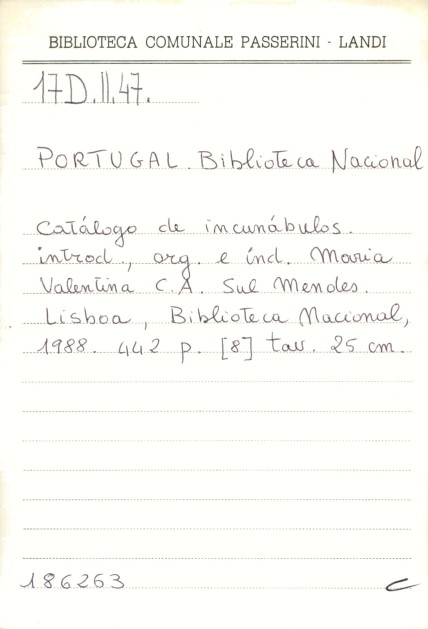 BIBLIOTECA COMUNALE PASSERINI - LANDI
17D.II.47.
PORTUGAL. Biblioteca Nacional
Catálogo de incunábulos.
introd., org. e índ. Maria
Valentina C.A. Sul Mendes.
Lisboa, Biblioteca Nacional,
1988. 442 p. [8] tav. 25 cm.
186263 C